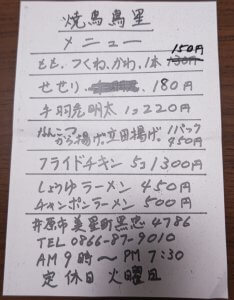 焼鳥鳥星
メニュー
150円
もも、つくね、かわ、1本 130円
せせり 180円
手羽先明太 1コ220円
なんこつ
から揚げ、立田揚げ。1パック
450円
フライドチキン 5コ1300円
しょうゆラーメン 450円
チャンポンラーメン 500円
井原市美星町黒忠4786
TEL 0866-87-9010
AM9時〜PM7:30
定休日 火曜日